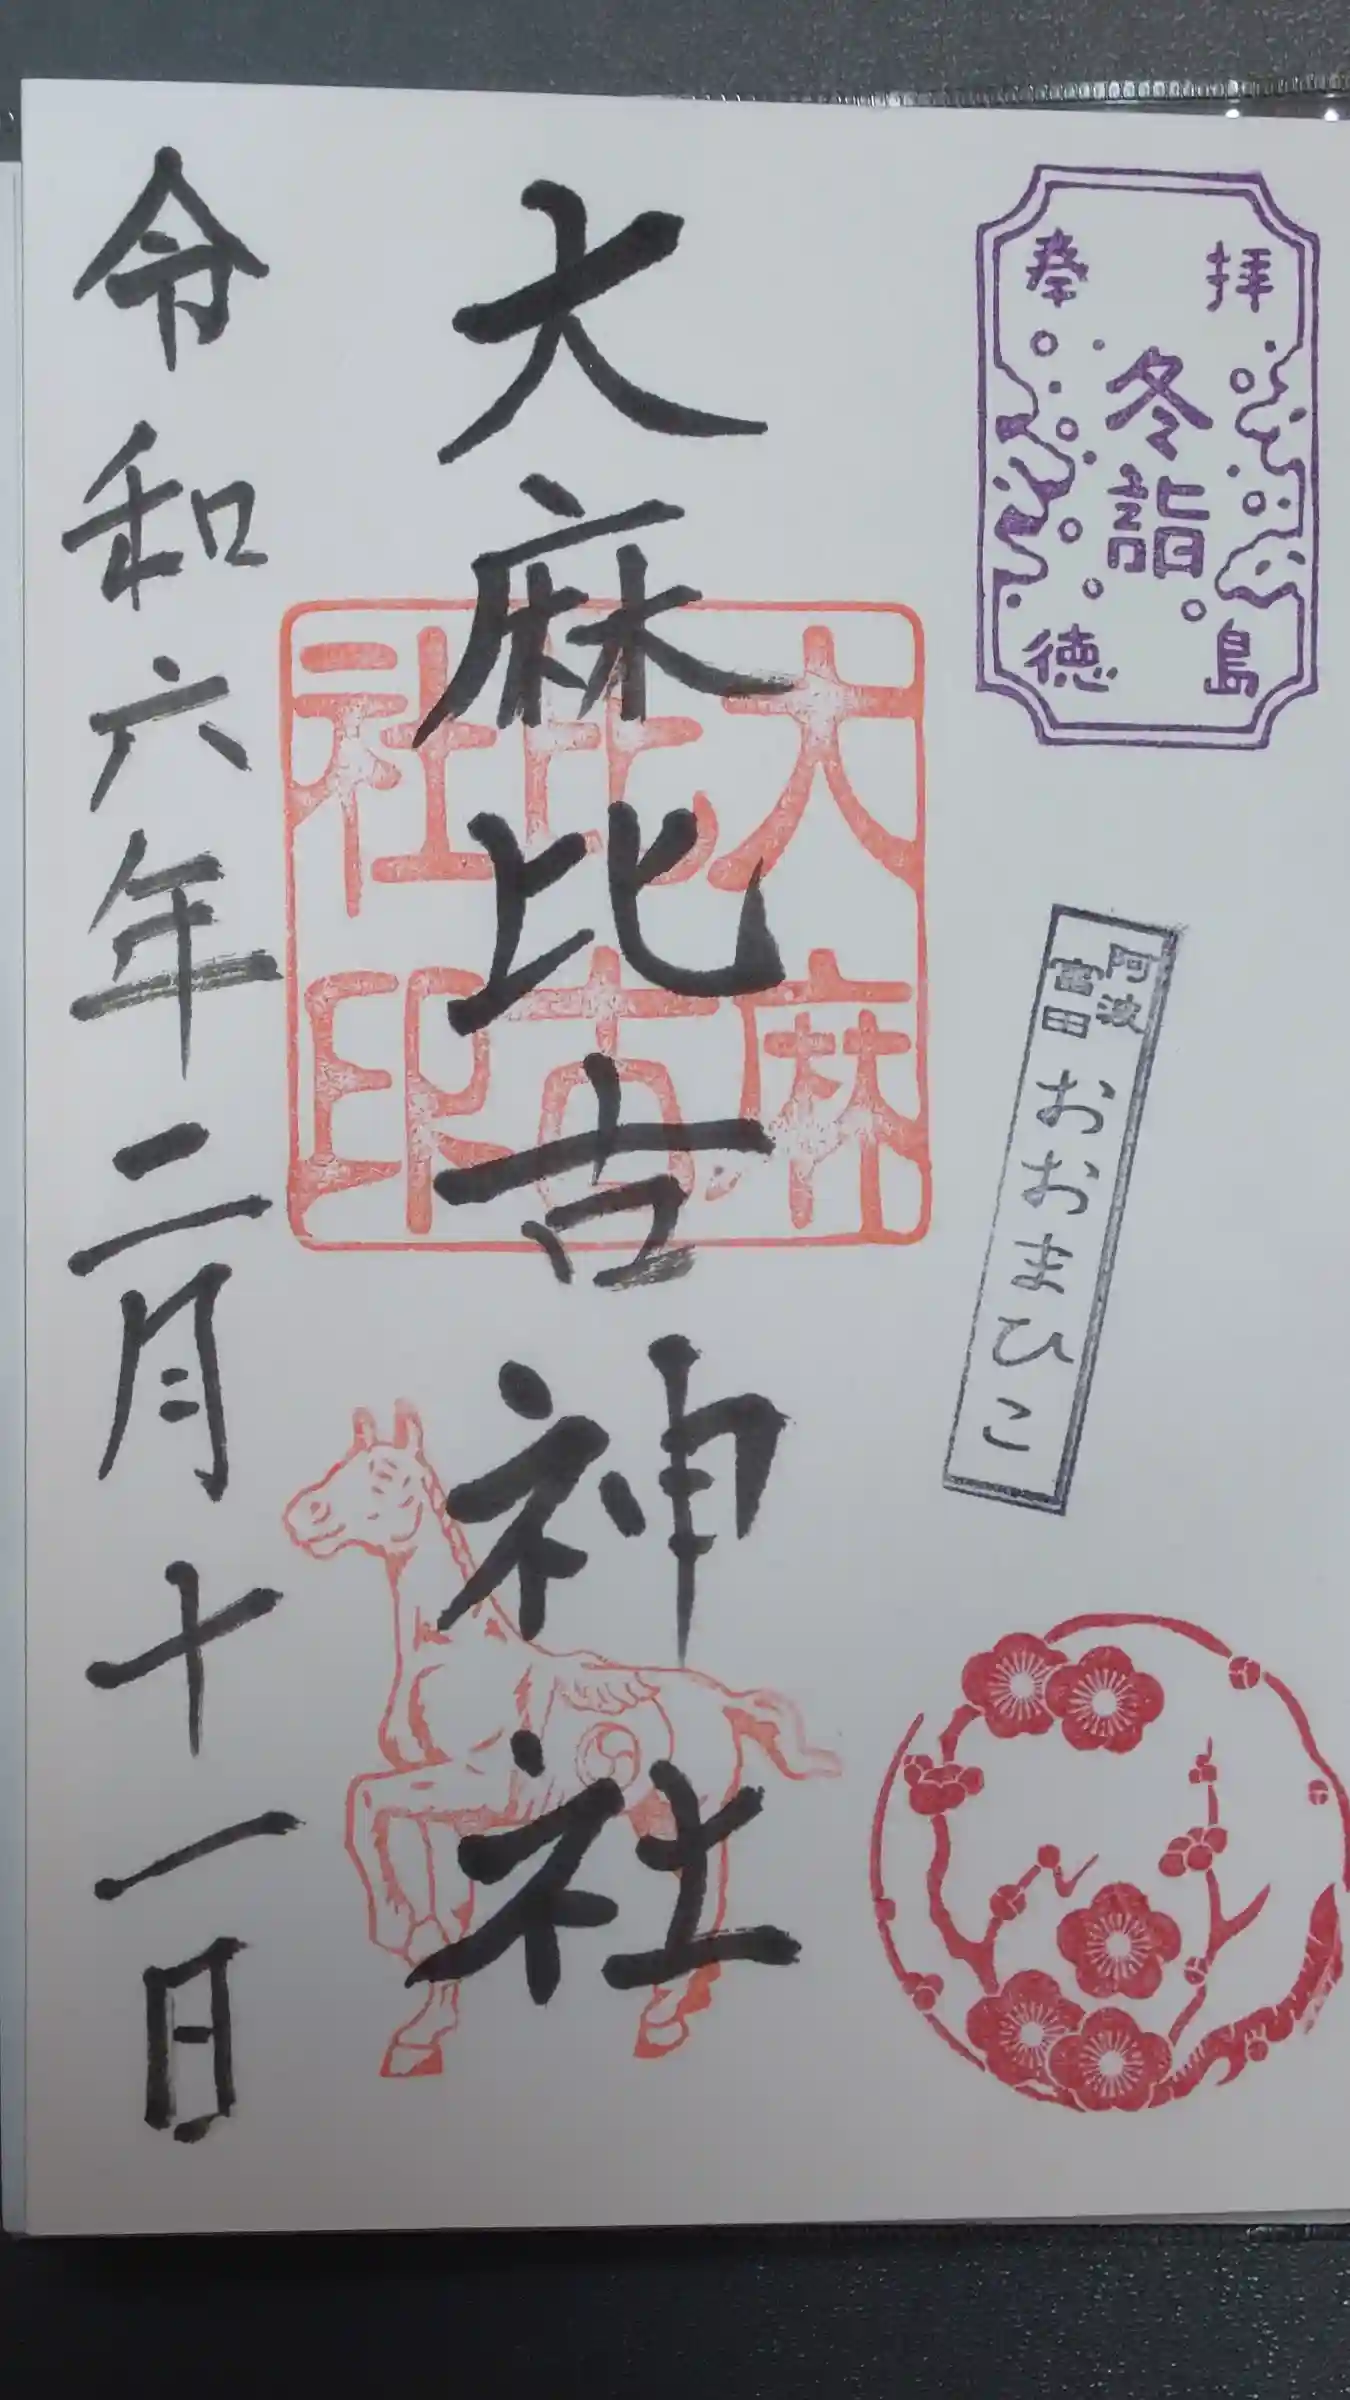 奉拝
冬詣
徳島
阿波
富田
おおまひこ
大麻比古神社
大麻
比古
社印
令和六年二月十一日